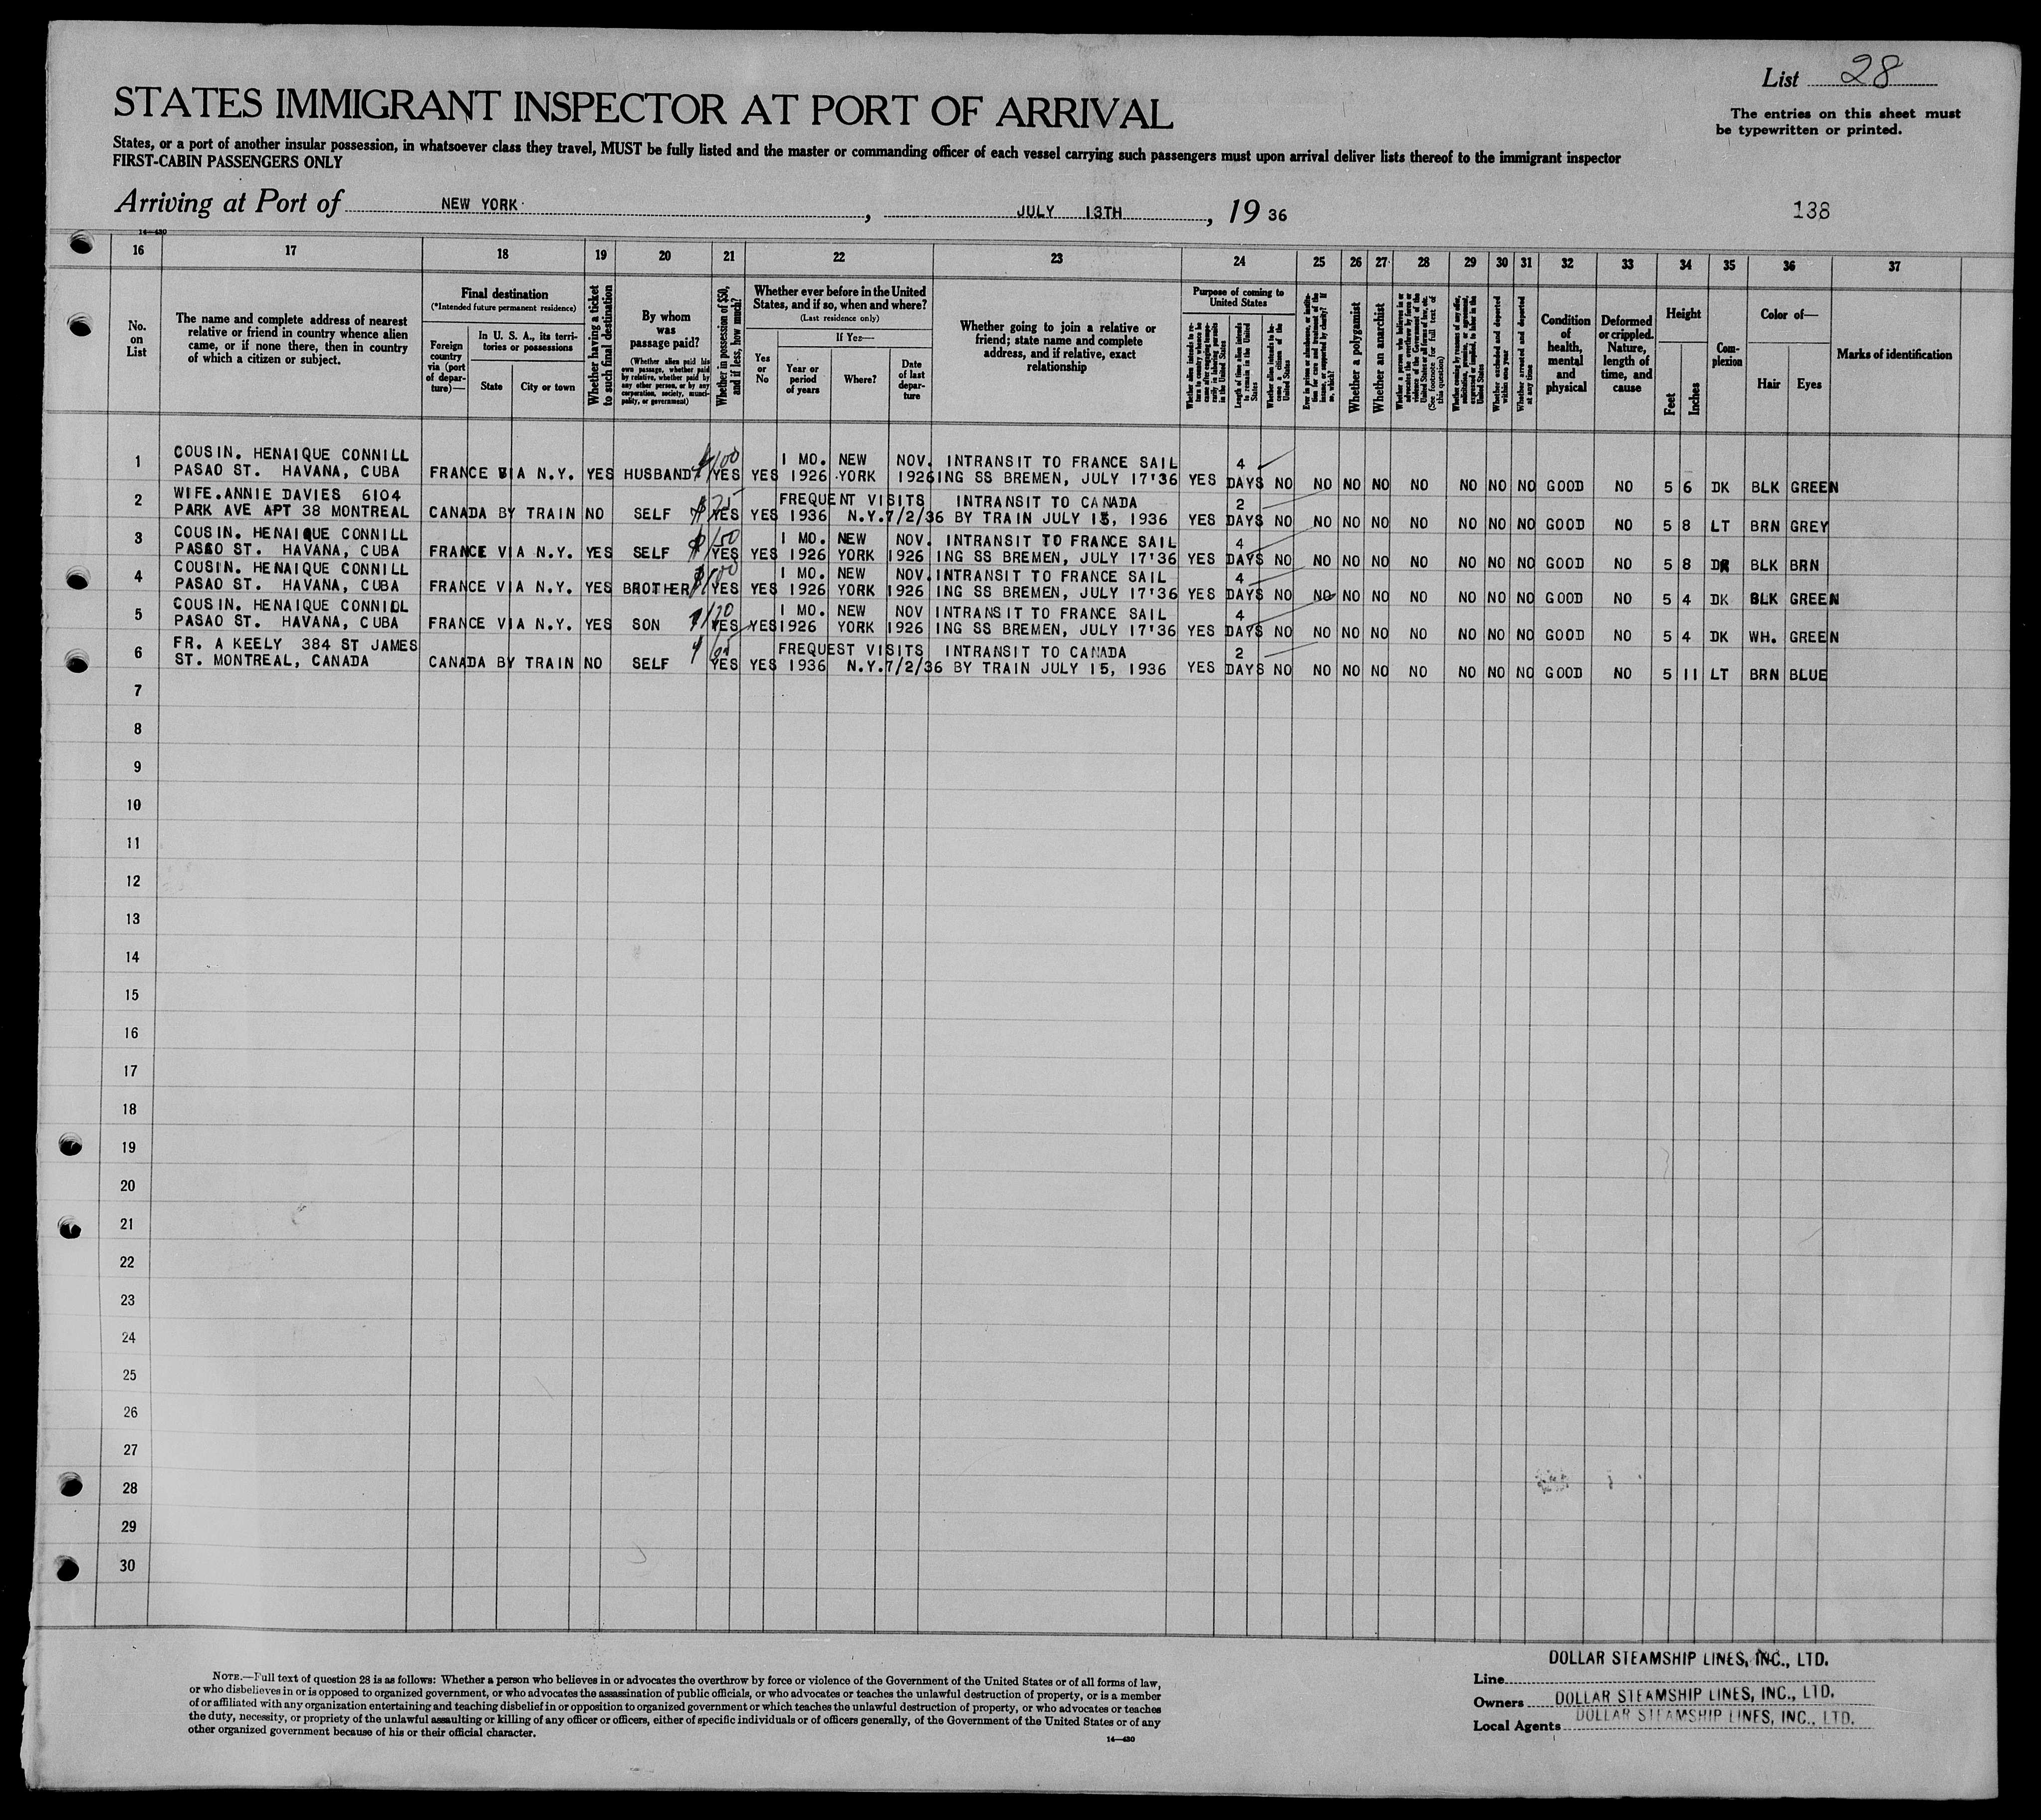 List 28
STATES IMMIGRANT INSPECTOR AT PORT OF ARRIVAL
The entries on this sheet must
be typewritten or printed.
States, or a port of another insular possession, in whatsoever class they travel, MUST be fully listed and the master or commanding officer of each vessel carrying such passengers must upon arrival deliver lists thereof to the immigrant inspector
FIRST-CABIN PASSENGERS ONLY
Arriving at Port of NEW YORK, JULY 13TH, 19 36
138
14—430
16 17 18 19 20 21 22 23 24 25 26 27 28 29 30 31 32 33 34 35 36 37
No.
on
List
The name and complete address of nearest
relative or friend in country whence alien
came, or if none there, then in country
of which a citizen or subject.
Final destination
(*Intended future permanent residence)
Foreign
country
via (port
of depar-
ture)—
In U. S. A., its terri-
tories or possessions
State
City or town
Whether having a ticket
to such final destination
By whom
was
passage paid?
(Whether alien paid his
own passage, whether paid
by relative, whether paid by
any other person, or by any
corporation, society, munici-
pality, or government)
Whether in possession of $50,
and if less, how much?
Whether ever before in the United
States, and if so, when and where?
(Last residence only)
Yes
or
No
If Yes—
Year or
period
of years
Where?
Date
of last
depar-
ture
Whether going to join a relative or
friend; state name and complete
address, and if relative, exact
relationship
Purpose of coming to
United States
Length of time alien intends
to remain in the United
States
Whether alien intends to be-
come a citizen of the
United States
Whether a polygamist
Whether an anarchist
Whether excluded and deported
within one year
Whether arrested and deported
at any time
Condition
of
health,
mental
and
physical
Deformed
or crippled.
Nature,
length of
time, and
cause
Height
Feet
Inches
Com-
plexion
Color of—
Hair
Eyes
Marks of identification
COUSIN. HENAIQUE CONNILL 1 MO. NEW NOV. INTRANSIT TO FRANCE SAIL 4
1 PASAO ST. HAVANA, CUBA FRANCE VIA N.Y. YES HUSBAND $100 YES YES 1926 YORK 1926 ING SS BREMEN, JULY 17'36 YES DAYS NO NO NO NO NO NO NO NO GOOD NO 5 6 DK BLK GREEN
WIFE.ANNIE DAVIES 6104 FREQUENT VISITS INTRANSIT TO CANADA 2
2 PARK AVE APT 38 MONTREAL CANADA BY TRAIN NO SELF YES YES 1936 N.Y. 7/2/36 BY TRAIN JULY 15, 1936 YES DAYS NO NO NO NO NO NO NO NO GOOD NO 5 8 LT BRN GREY
COUSIN. HENAIQUE CONNILL 1 MO. NEW NOV. INTRANSIT TO FRANCE SAIL 4
3 PASAO ST. HAVANA, CUBA FRANCE VIA N.Y. YES SELF YES YES 1926 YORK 1926 ING SS BREMEN, JULY 17'36 YES DAYS NO NO NO NO NO NO NO NO GOOD NO 5 8 DK BLK BRN
COUSIN. HENAIQUE CONNILL 1 MO. NEW NOV. INTRANSIT TO FRANCE SAIL 4
4 PASAO ST. HAVANA, CUBA FRANCE VIA N.Y. YES BROTHER $100 YES YES 1926 YORK 1926 ING SS BREMEN, JULY 17'36 YES DAYS NO NO NO NO NO NO NO NO GOOD NO 5 4 DK BLK GREEN
COUSIN. HENAIQUE CONNIDL 1 MO. NEW NOV INTRANSIT TO FRANCE SAIL 4
5 PASAO ST. HAVANA, CUBA FRANCE VIA N.Y. YES SON YES YES 1926 YORK 1926 ING SS BREMEN, JULY 17'36 YES DAYS NO NO NO NO NO NO NO NO GOOD NO 5 4 DK WH. GREEN
FR. A KEELY 384 ST JAMES FREQUEST VISITS INTRANSIT TO CANADA 2
6 ST. MONTREAL, CANADA CANADA BY TRAIN NO SELF YES YES 1936 N.Y. 7/2/36 BY TRAIN JULY 15, 1936 YES DAYS NO NO NO NO NO NO NO NO GOOD NO 5 11 LT BRN BLUE
7
8
9
10
11
12
13
14
15
16
17
18
19
20
21
22
23
24
25
26
27
28
29
30
NOTE.—Full text of question 28 is as follows: Whether a person who believes in or advocates the overthrow by force or violence of the Government of the United States or of all forms of law,
or who disbelieves in or is opposed to organized government, or who advocates the assassination of public officials, or who advocates or teaches the unlawful destruction of property, or is a member
of or affiliated with any organization entertaining and teaching disbelief in or opposition to organized government or which teaches the unlawful destruction of property, or who advocates or teaches
the duty, necessity, or propriety of the unlawful assaulting or killing of any officer or officers, either of specific individuals or of officers generally, of the Government of the United States or of any
other organized government because of his or their official character.
14—430
Line DOLLAR STEAMSHIP LINES, INC., LTD.
Owners DOLLAR STEAMSHIP LINES, INC., LTD.
Local Agents DOLLAR STEAMSHIP LINES, INC., LTD.